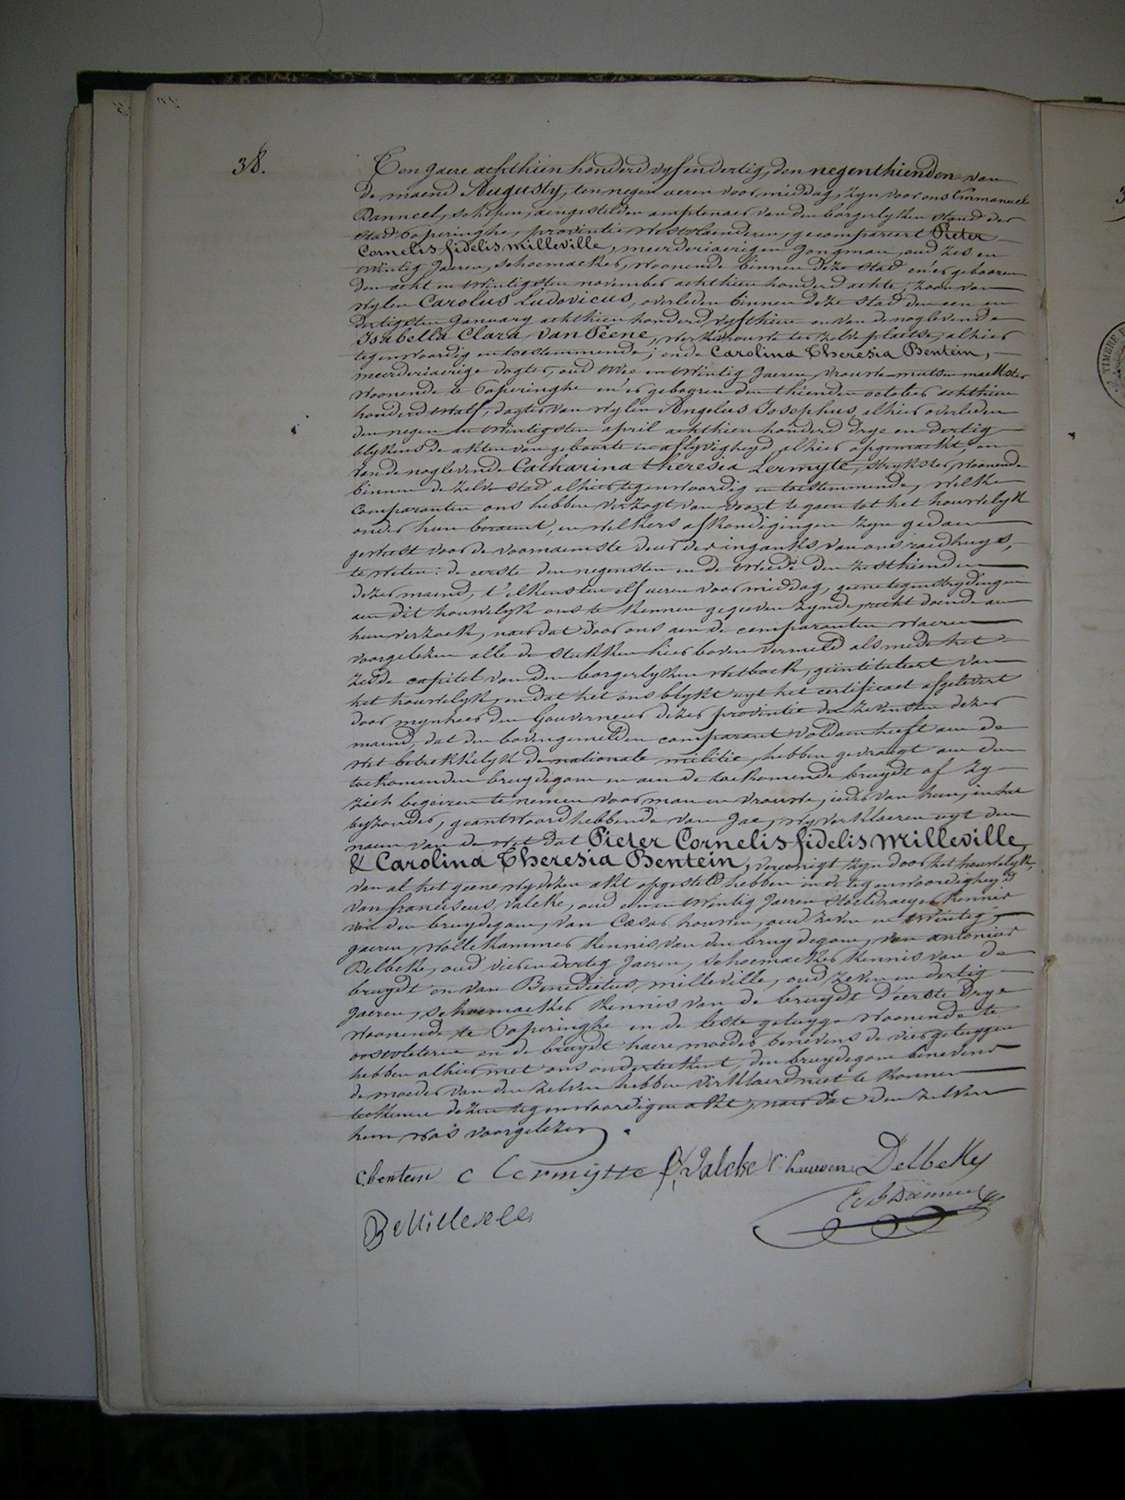 38.
Ten jaere achthien honderd vyfendertig, den negenthienden van
de maend Augusty, ten negen ueren voormiddag, zyn voor ons Emmanuel
Danneel, schepen, aengestelden amptenaer van den borgerlyken stand der
stad Poperinghe, provintie Westvlaenderen, gecompareert Pieter
Cornelis fidelis Milleville, meerderjaerigen jongman, oud zes en
twintig jaeren, schoemaeker, woonende binnen deze stad en'er gebooren
den acht en twintigsten november achthien honderd achte, zoon van
wylen Carolus Ludovicus, overleden binnen deze stad den een en
dertigsten January achthien honderd vyfthien en van de noglevende
Isabella Clara Van Peene, werkvrouwe ter zelve plaetse, alhier
tegenwoordig en toestemmende; ende Carolina Theresia Bentein,
meerderjaerige dogter, oud twee en twintig jaeren, vrouwe-mutsen maekster
woonende te Poperinghe en'er gebooren den thienden october achthien
honderd twalf, dogter van wylen Angelus Josephus, alhier overleden
den negen en twintigsten april achthien honderd drye en dertig
blykens de akten van geboorte en aflyvigheyd alhier opgemaekt, en
van de noglevende Catharina theresia Lermyte, strykster, woonende
binnen de zelve stad alhier tegenwoordig en toestemmende, welke
comparanten ons hebben verzogt van voort te gaen tot het houwelyk
onder hun beraemt, en welkers afkondigingen zyn gedaen
geweest voor de voornaemste deur der ingank van ons raedhuys,
te weten: de eerste den negensten en de tweede den zesthienden
dezer maend, t'elkensten elf ueren voormiddag, geene tegenstrydingen
aen dit houwelyk ons te kennen gegeven zynde, recht doende aen
hun verzoek, naer dat door ons aen de comparanten waeren
voorgelezen alle de stukken hier boven vermeld alsmede het
zesde capitel van den borgerlyken wetboek, geintituleert van
het houwelyk, en dat het ons blykt uyt het certificaet afgelevert
door mynheer den Gouverneur dezer provintie den zevensten dezer
maend, dat den bovengemelden comparant voldaen heeft aen de
wet betrekkelyk de nationale militie, hebben gevraegt aen den
toekomenden bruydegom en aen de toekomende bruydt of zy
zich begeiren te nemen voor man en vrouwe, ieder van hun, in het
byzonder, geantwoord hebbende van Jae, wy verklaeren uyt den
naem van de wet dat Pieter Cornelis fidelis Milleville
& Carolina Theresia Bentein, vereenigt zyn door het houwelyk,
van al het geene wy dezen akt opgesteld hebben in de tegenwoordigheyd
van franciscus Valcke, oud een en twintig jaeren, kennis
van den bruydegom, van Cesar houven, oud zeven en twintig
jaeren, wollekammer kennis van den bruydegom, van antonius
Delbeke, oud vierendertig jaeren, schoemaeker kennis van de
bruydt en van Benedictus, milleville, oud zeven en dertig
jaeren, schoemaeker kennis van de bruydt d'eerste drye
woonende te Poperinghe en de leste getuyge woonende te
oostvleteren en de bruydt haere moeder benevens de vier getuygen
hebben alhier met ons onderteekent, den bruydegom benevens
de moeder van den zelven hebben verklaerd niet te konnen
teekenen dezen tegenwoordigen akt, naer dat den zelven
hun was voorgelezen
C bentein C Lermijtte f. Valcke C. houven Delbeke
B Milleville